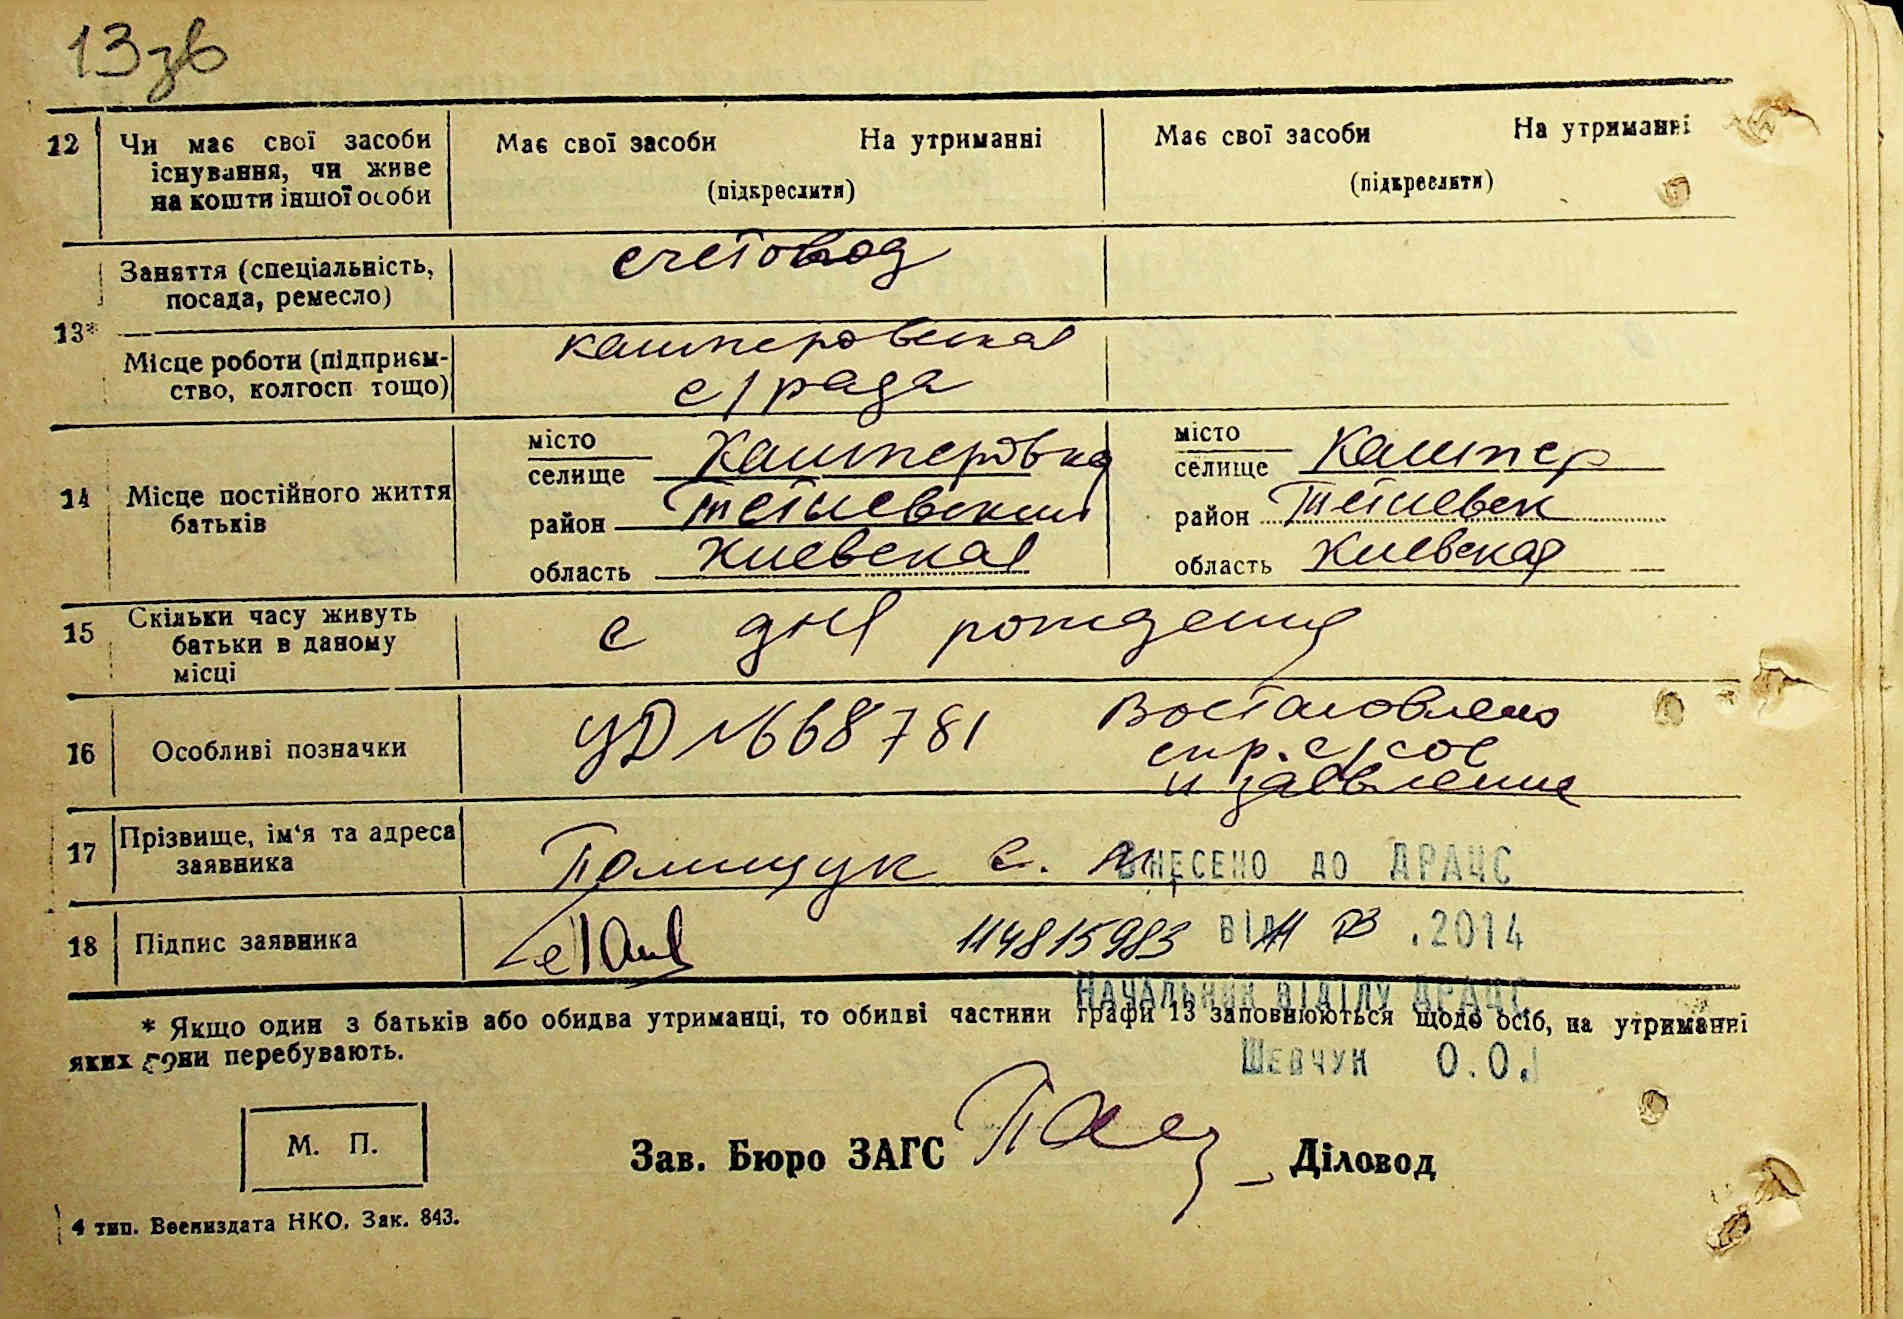 13зв
12 Чи має свої засоби існування, чи живе на кошти іншої особи
Має свої засоби На утриманні
(підкреслити)
Має свої засоби На утриманні
(підкреслити)
13*
Заняття (спеціальність, посада, ремесло)
счетовод
Місце роботи (підприєм-
ство, колгосп тощо)
кашперовская
с/рада
14 Місце постійного життя батьків
місто
селище Кашперовка
район Тетиевский
область Киевская
місто
селище Кашпер
район Тетиевск
область Киевская
15 Скільки часу живуть батьки в даному місці
с дня рождения
16 Особливі позначки
УД № 668781 Востановлено
спр. с/сов
и заявление
17 Прізвище, ім'я та адреса заявника
Полищук С. М.
ВНЕСЕНО ДО ДРАЦС
18 Підпис заявника
114815983 ВІД .2014
НАЧАЛЬНИК ВІДДІЛУ ДРАЦС
* Якщо один з батьків або обидва утриманці, то обидві частини графи 13 заповнюються щодо осіб, на утриманні
яких вони перебувають.
ШЕВЧУК О.О.
М. П.
Зав. Бюро ЗАГС Діловод
4 тип. Воениздата НКО. Зак. 843.